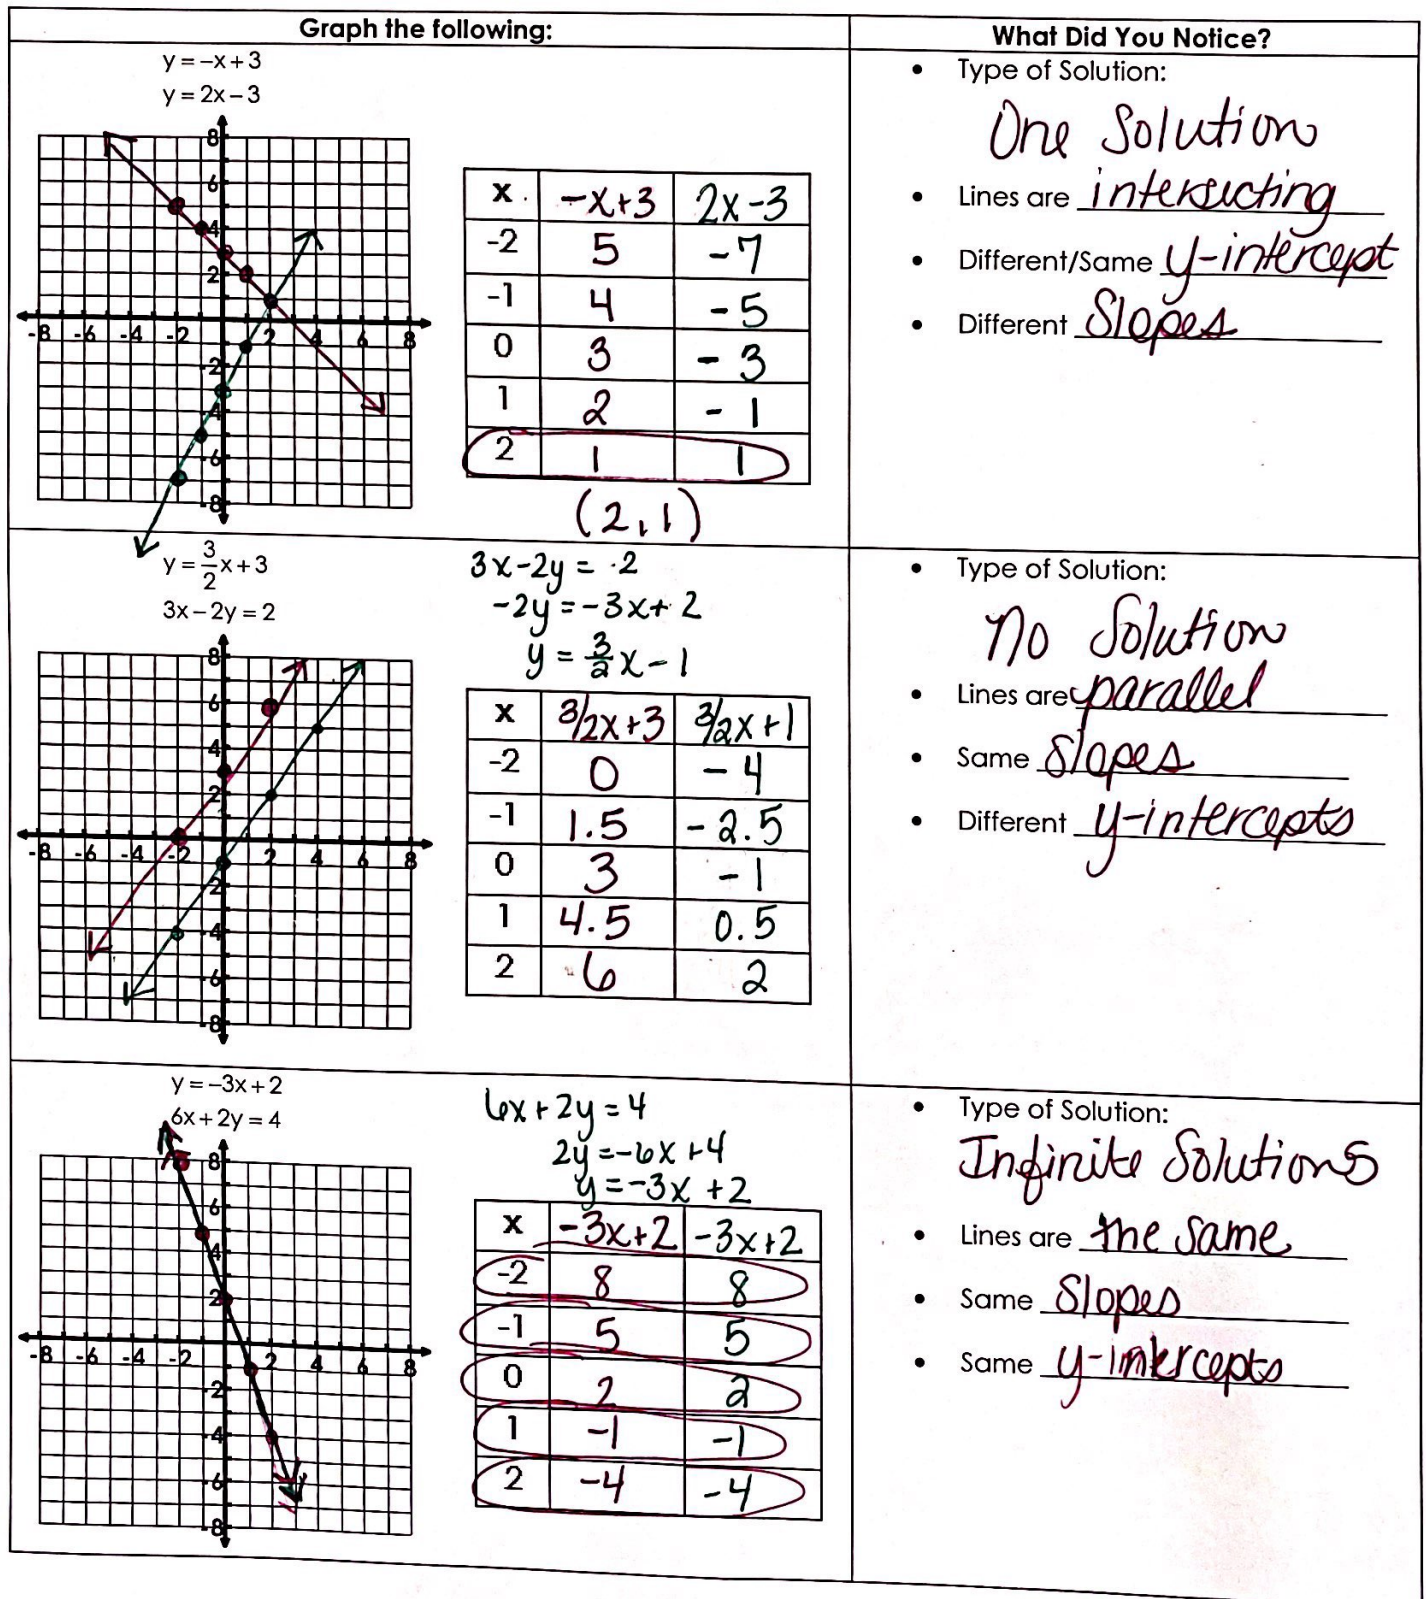 Graph the following:
What Did You Notice?
y = –x + 3
y = 2x – 3
8
6
4
2
-8 -6 -4 -2 2 4 6 8
-2
-4
-6
-8
x -x+3 2x-3
-2 5 -7
-1 4 -5
0 3 -3
1 2 -1
2 1 1
(2,1)
• Type of Solution:
One Solution
• Lines are intersecting
• Different/Same y-intercept
• Different Slopes
y = 3/2 x + 3
3x – 2y = 2
8
6
4
2
-8 -6 -4 -2 2 4 6 8
-2
-4
-6
-8
3x-2y = 2
-2y = -3x + 2
y = 3/2 x - 1
x 3/2x+3 3/2x+1
-2 0 -4
-1 1.5 -2.5
0 3 -1
1 4.5 0.5
2 6 2
• Type of Solution:
no Solution
• Lines are parallel
• Same slopes
• Different y-intercepts
y = –3x + 2
6x + 2y = 4
8
6
4
2
-8 -6 -4 -2 2 4 6 8
-2
-4
-6
-8
6x + 2y = 4
2y = -6x + 4
y = -3x + 2
x -3x+2 -3x+2
-2 8 8
-1 5 5
0 2 2
1 -1 -1
2 -4 -4
• Type of Solution:
Infinite Solutions
• Lines are the same
• Same Slopes
• Same y-intercepts